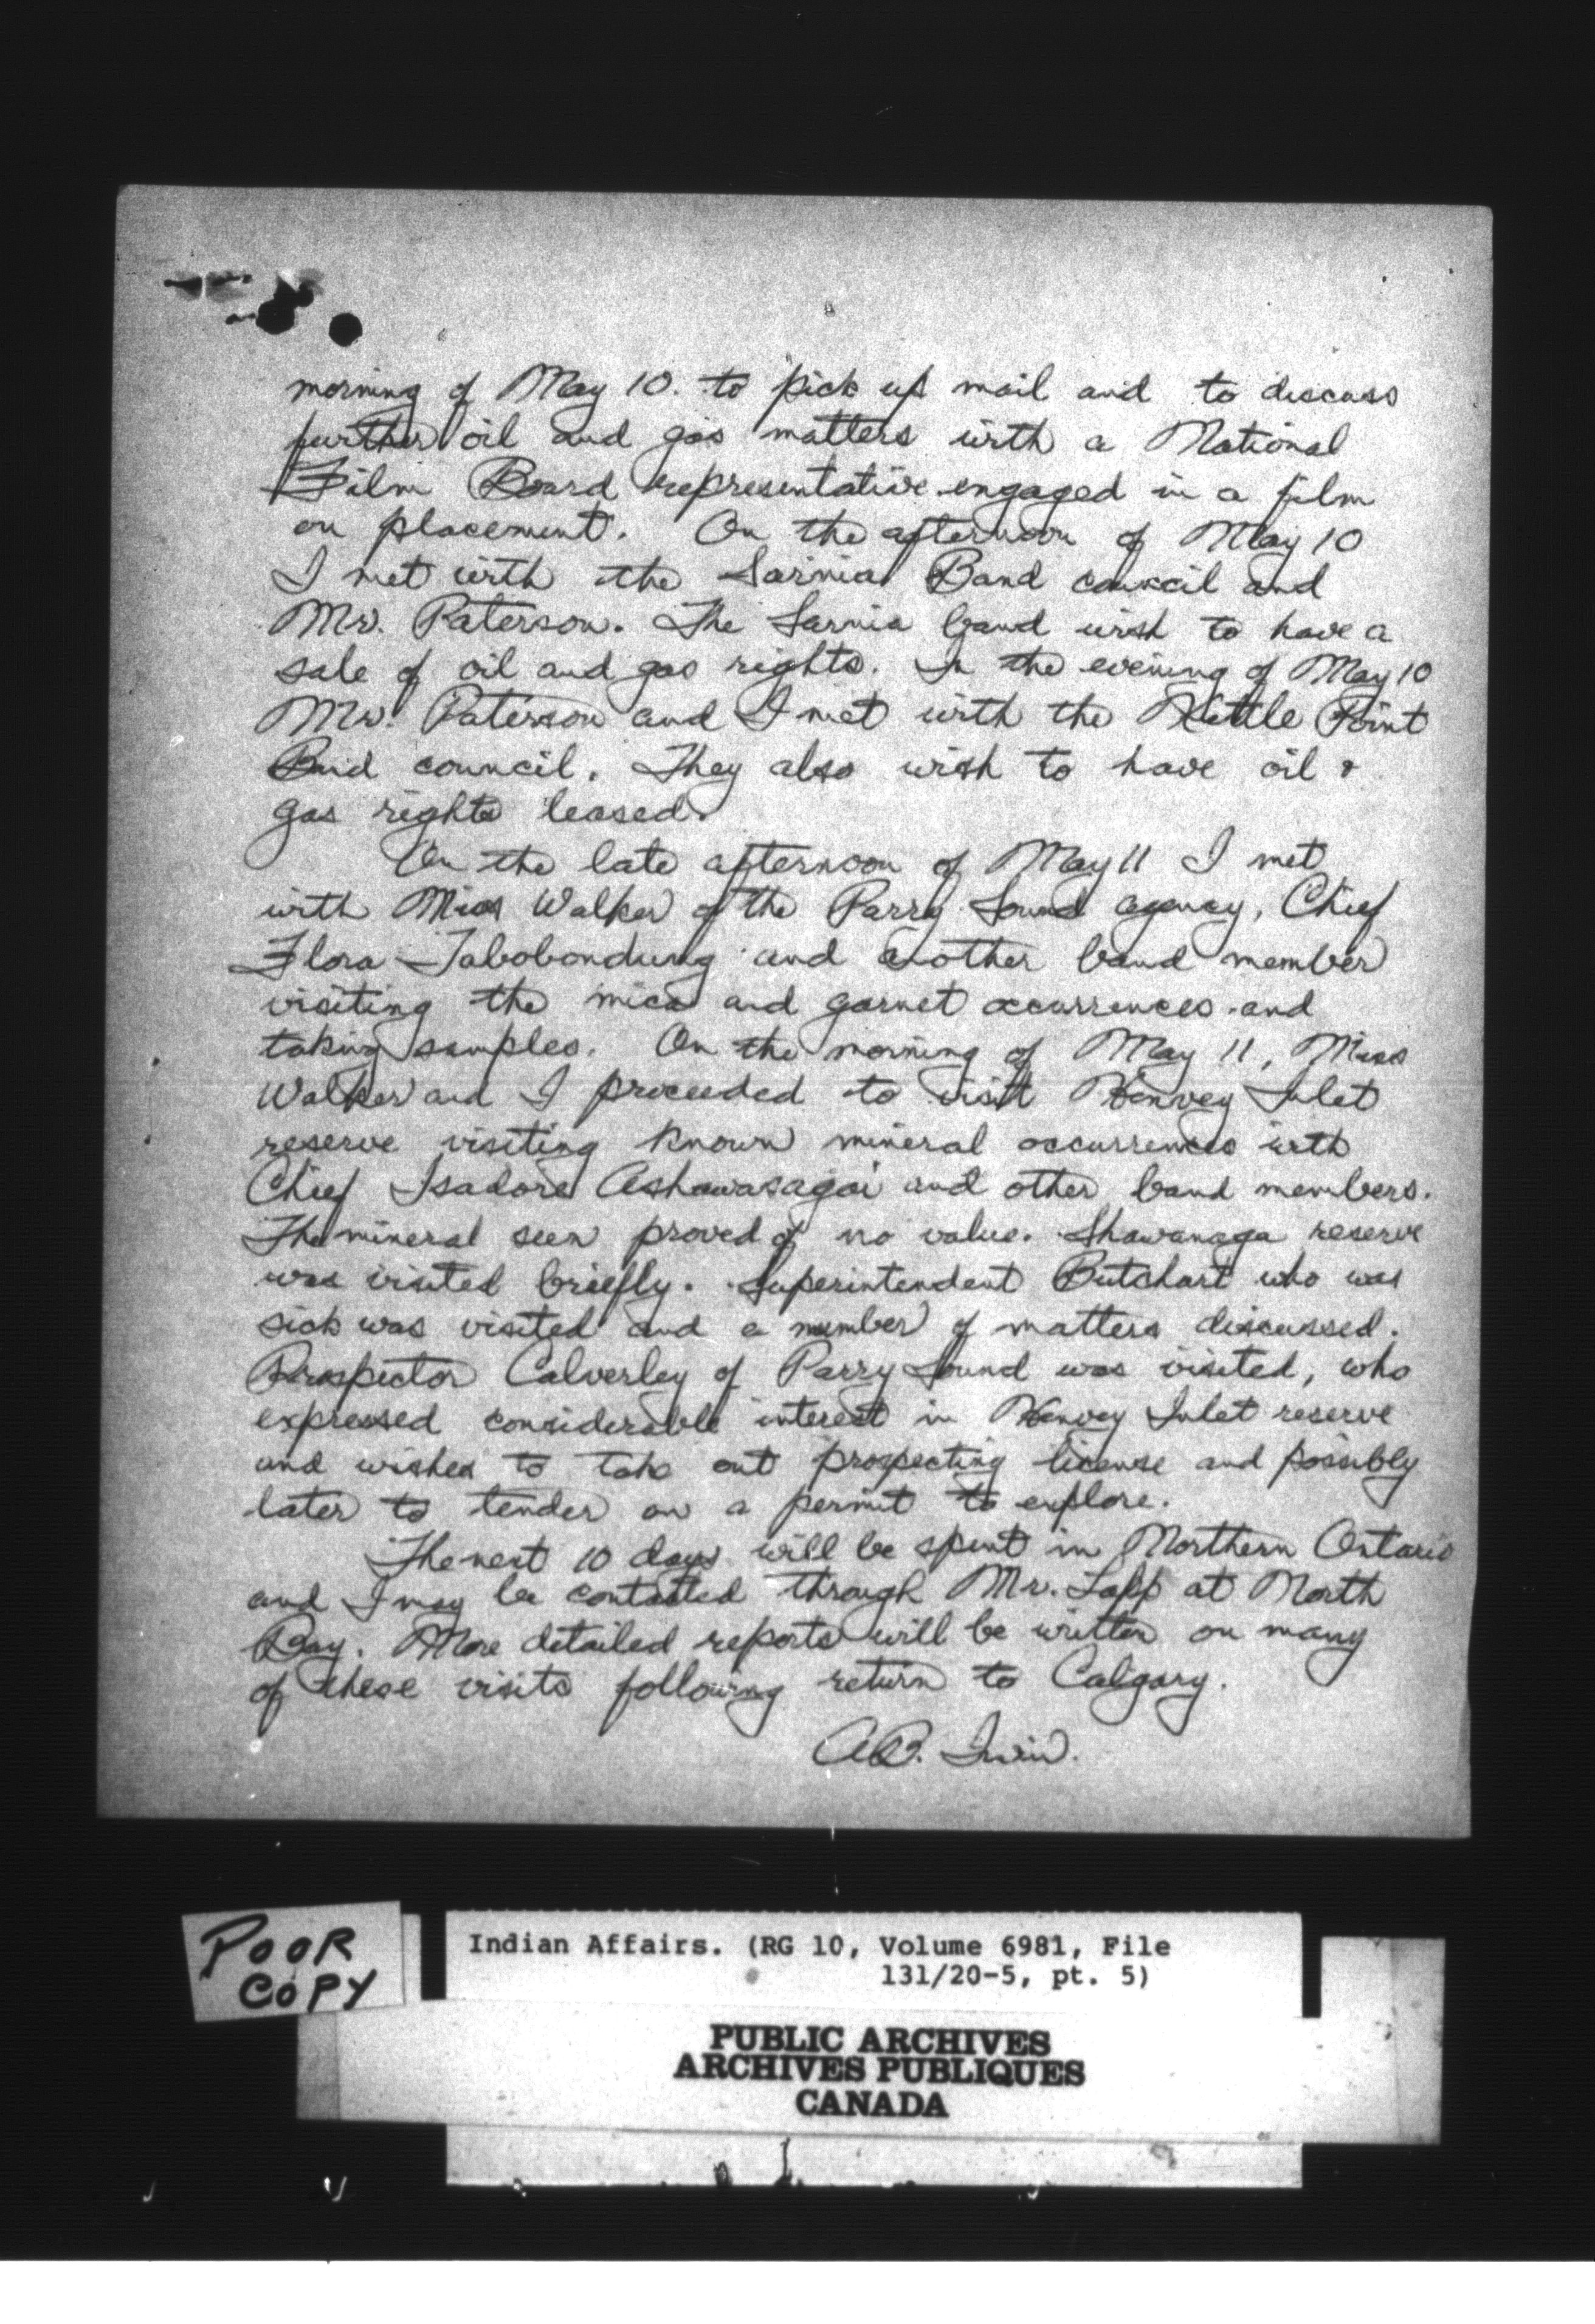 morning of May 10. to pick up mail and to discuss
further oil and gas matters with a National
Film Board representative engaged in a film
on placement. On the afternoon of May 10
I met with the Sarnia Band council and
Mr. Paterson. The Sarnia band wish to have a
sale of oil and gas rights. In the evening of May 10
Mr. Paterson and I met with the Kettle Point
Band council. They also wish to have oil &
gas rights leased.
On the late afternoon of May 11 I met
with Miss Walker of the Parry Sound agency, Chief
Flora Tabobondung and another band member
visiting the mica and garnet occurrences and
taking samples. On the morning of May 11, Miss
Walker and I proceeded to visit Henvey Inlet
reserve visiting known mineral occurrences with
Chief Isadore Ashawasagai and other band members.
The mineral seen proved of no value. Shawanaga reserve
was visited briefly. Superintendent Butchart who was
sick was visited and a number of matters discussed.
Prospector Calverley of Parry Sound was visited, who
expressed considerable interest in Henvey Inlet reserve
and wished to take out prospecting license and possibly
later to tender on a permit to explore.
The next 10 days will be spent in Northern Ontario
and I may be contacted through Mr. Lapp at North
Bay. More detailed reports will be written on many
of these visits following return to Calgary.
A.B. Irwin.
POOR
COPY
Indian Affairs. (RG 10, Volume 6981, File
131/20-5, pt. 5)
PUBLIC ARCHIVES
ARCHIVES PUBLIQUES
CANADA